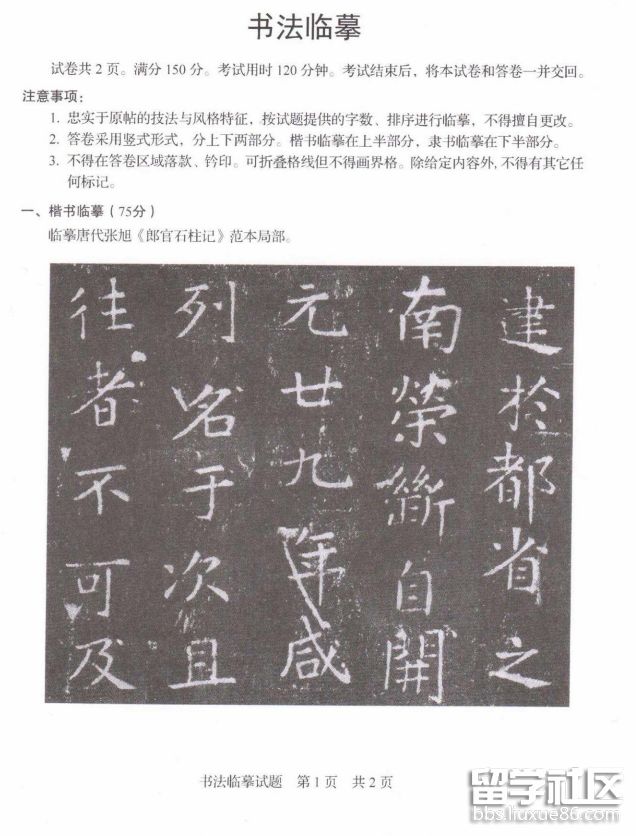 书法临摹
试卷共 2 页。满分 150 分。考试用时 120 分钟。考试结束后，将本试卷和答卷一并交回。
注意事项：
1. 忠实于原帖的技法与风格特征，按试题提供的字数、排序进行临摹，不得擅自更改。
2. 答卷采用竖式形式，分上下两部分。楷书临摹在上半部分，隶书临摹在下半部分。
3. 不得在答卷区域落款、钤印。可折叠格线但不得画界格。除给定内容外，不得有其它任
何标记。
一、楷书临摹（75分）
临摹唐代张旭《郎官石柱记》范本局部。
建於都省之
南榮斲自開
元廿九年咸
列名于次且
往者不可及
书法临摹试题 第 1 页 共 2 页
留学社区
bbs.liuxue86.com